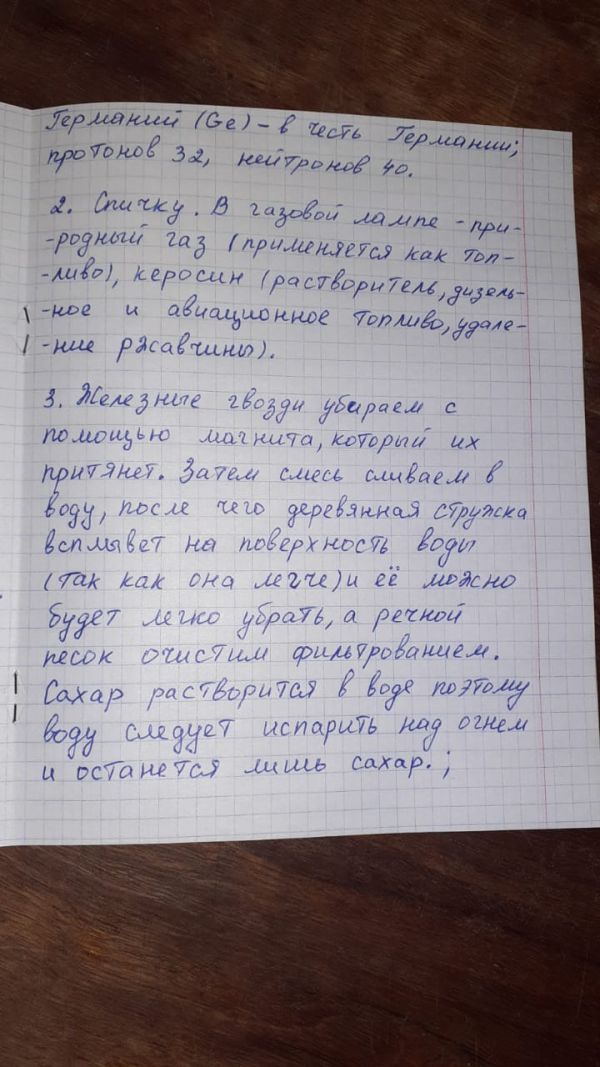 Германий (Ge) – в честь Германии;
протонов 32, нейтронов 40.
2. Спичку. В газовой лампе - при-
-родный газ (применяется как топ-
-ливо), керосин (растворитель, дизель-
-ное и авиационное топливо, удале-
-ние ржавчины).
3. Железные гвозди убираем с
помощью магнита, который их
притянет. Затем смесь сливаем в
воду, после чего деревянная стружка
всплывет на поверхность воды
(так как она легче) и её можно
будет легко убрать, а речной
песок очистим фильтрованием.
Сахар растворится в воде поэтому
воду следует испарить над огнем
и останется лишь сахар. ;